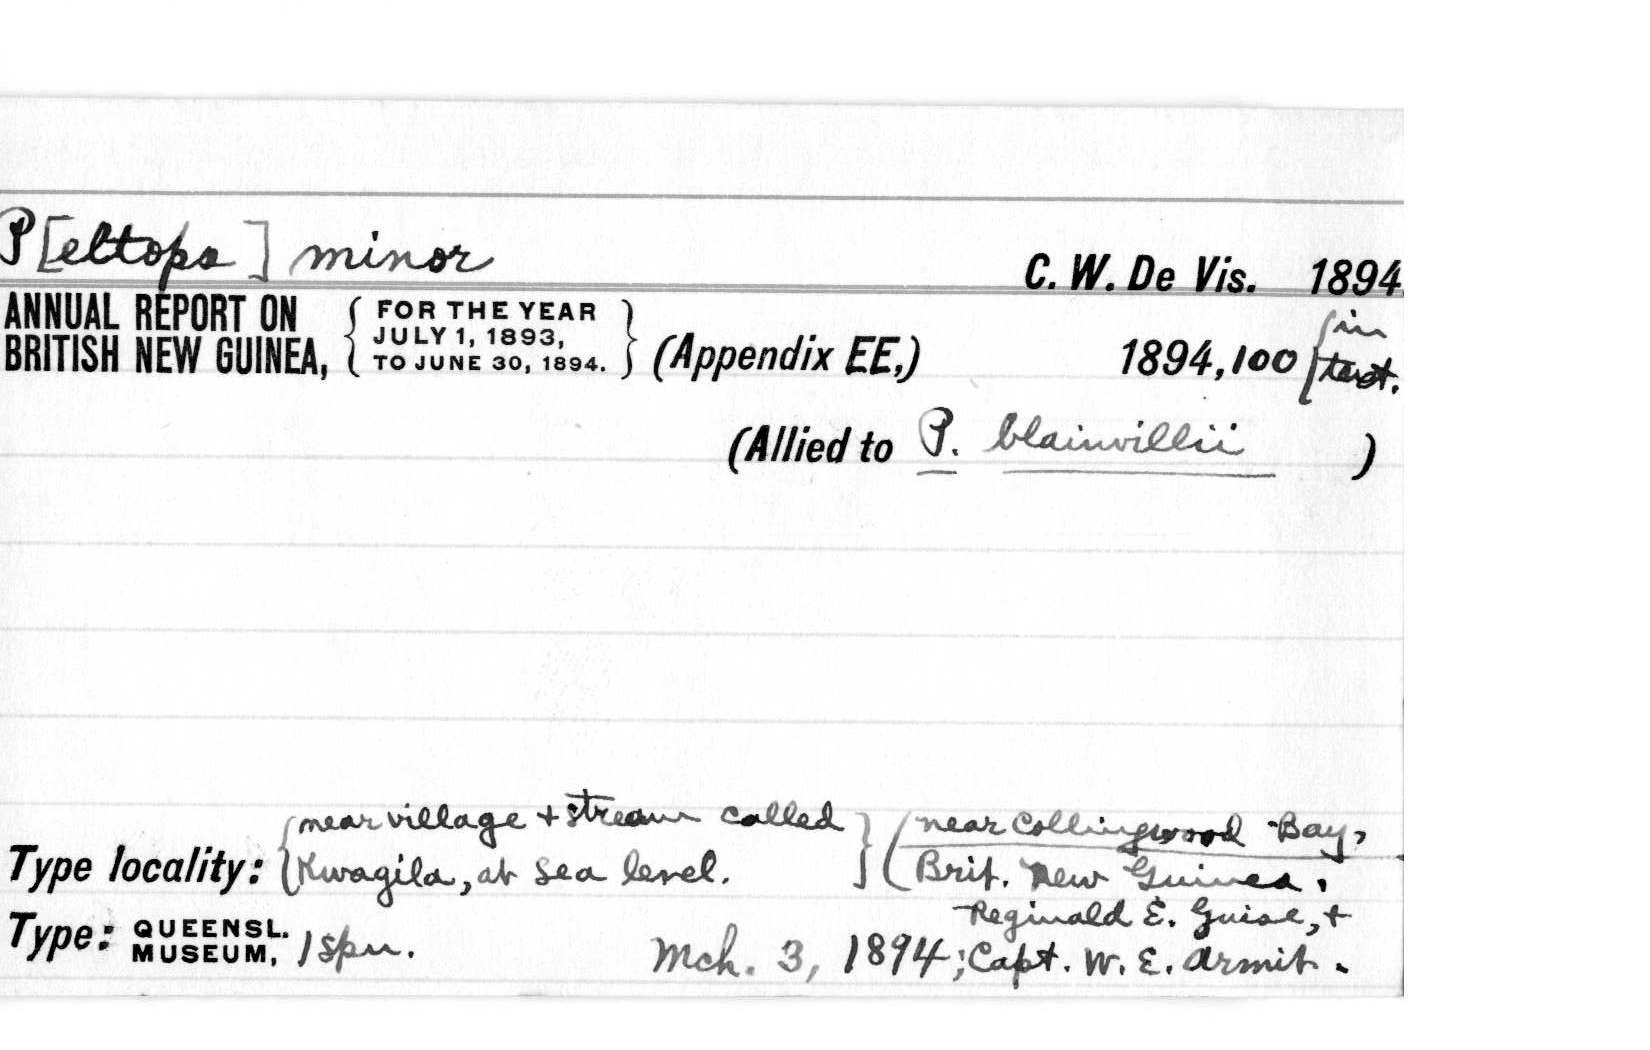 P[eltops] minor C. W. De Vis. 1894
ANNUAL REPORT ON BRITISH NEW GUINEA, { FOR THE YEAR JULY 1, 1893, TO JUNE 30, 1894. } (Appendix EE,) 1894, 100 [in text.
(Allied to P. blainvillii )
Type locality: {near village + stream called Kwagila, at sea level.} (near Collingwood Bay, Brit. New Guinea.
Type: QUEENSL. MUSEUM, 1 spn. Mch. 3, 1894; Reginald E. Guise, + Capt. W. E. Armit.